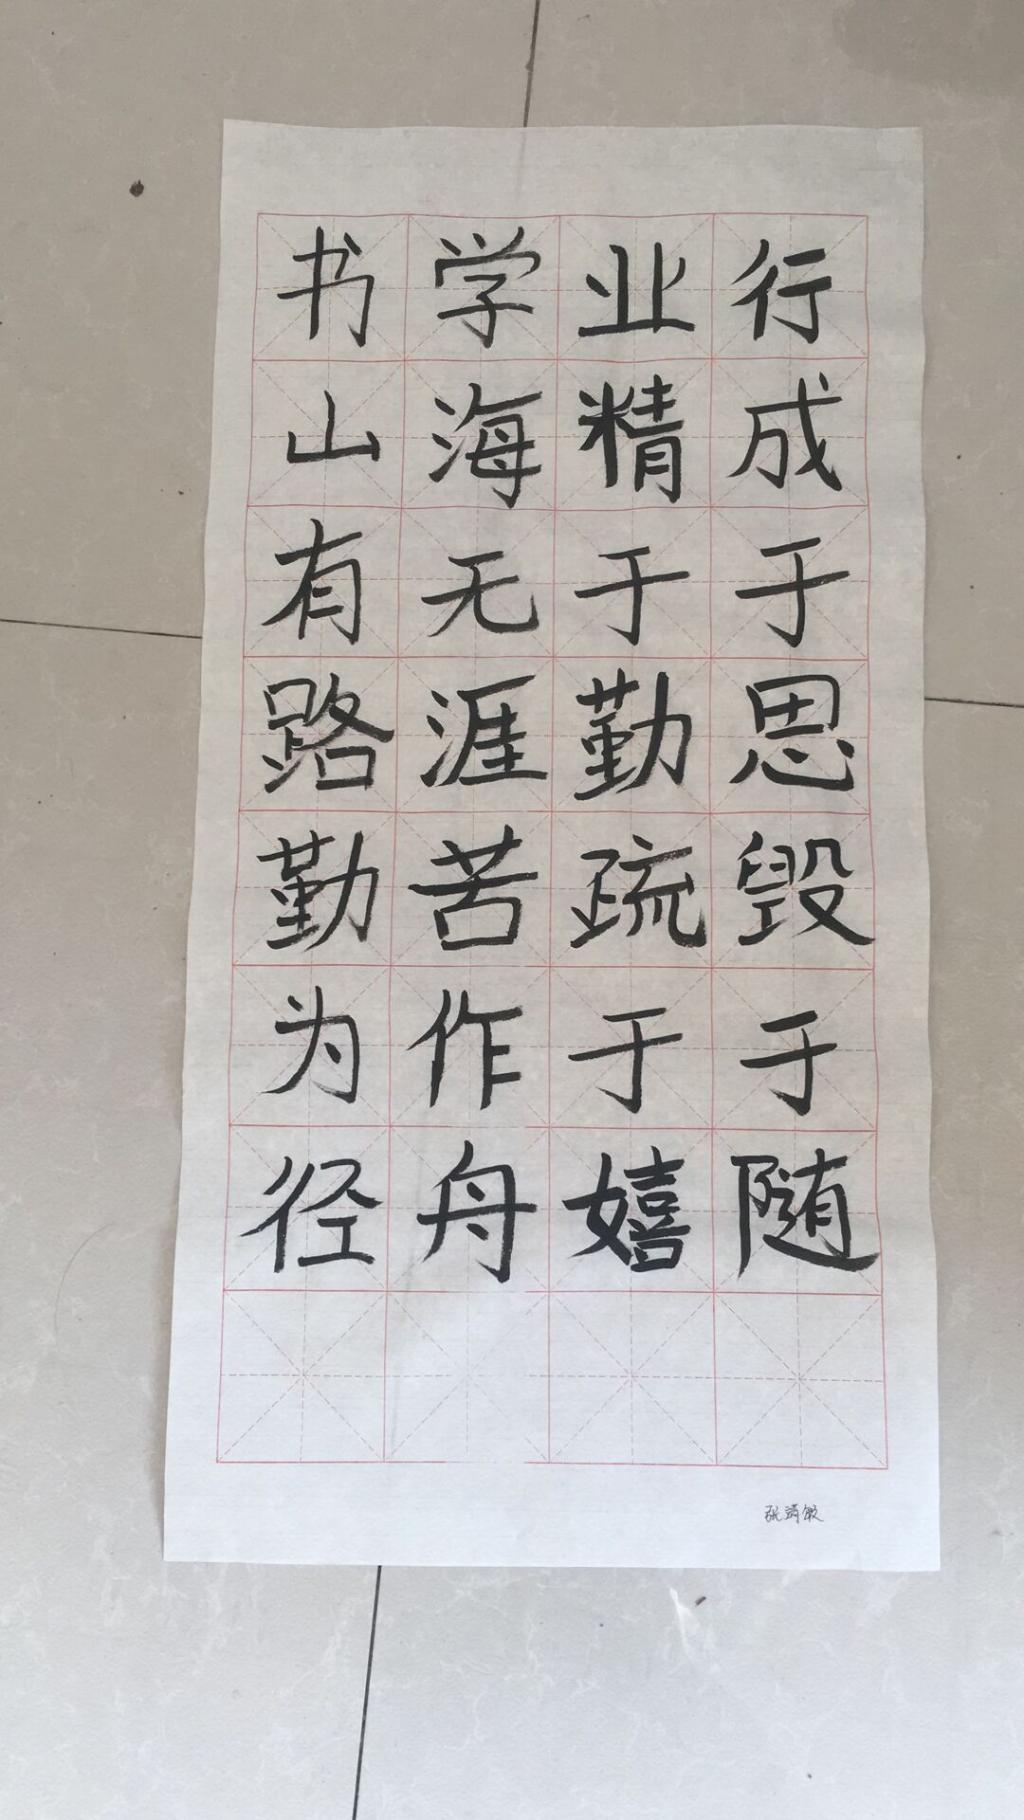 书山有路勤为径
学海无涯苦作舟
业精于勤疏于嬉
行成于思毁于随
张靖敏